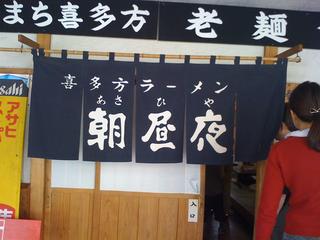 まち喜多方 老麺
喜多方ラーメン
あさ ひ や
朝昼夜
入口
Asahi
アサヒ
スーパー